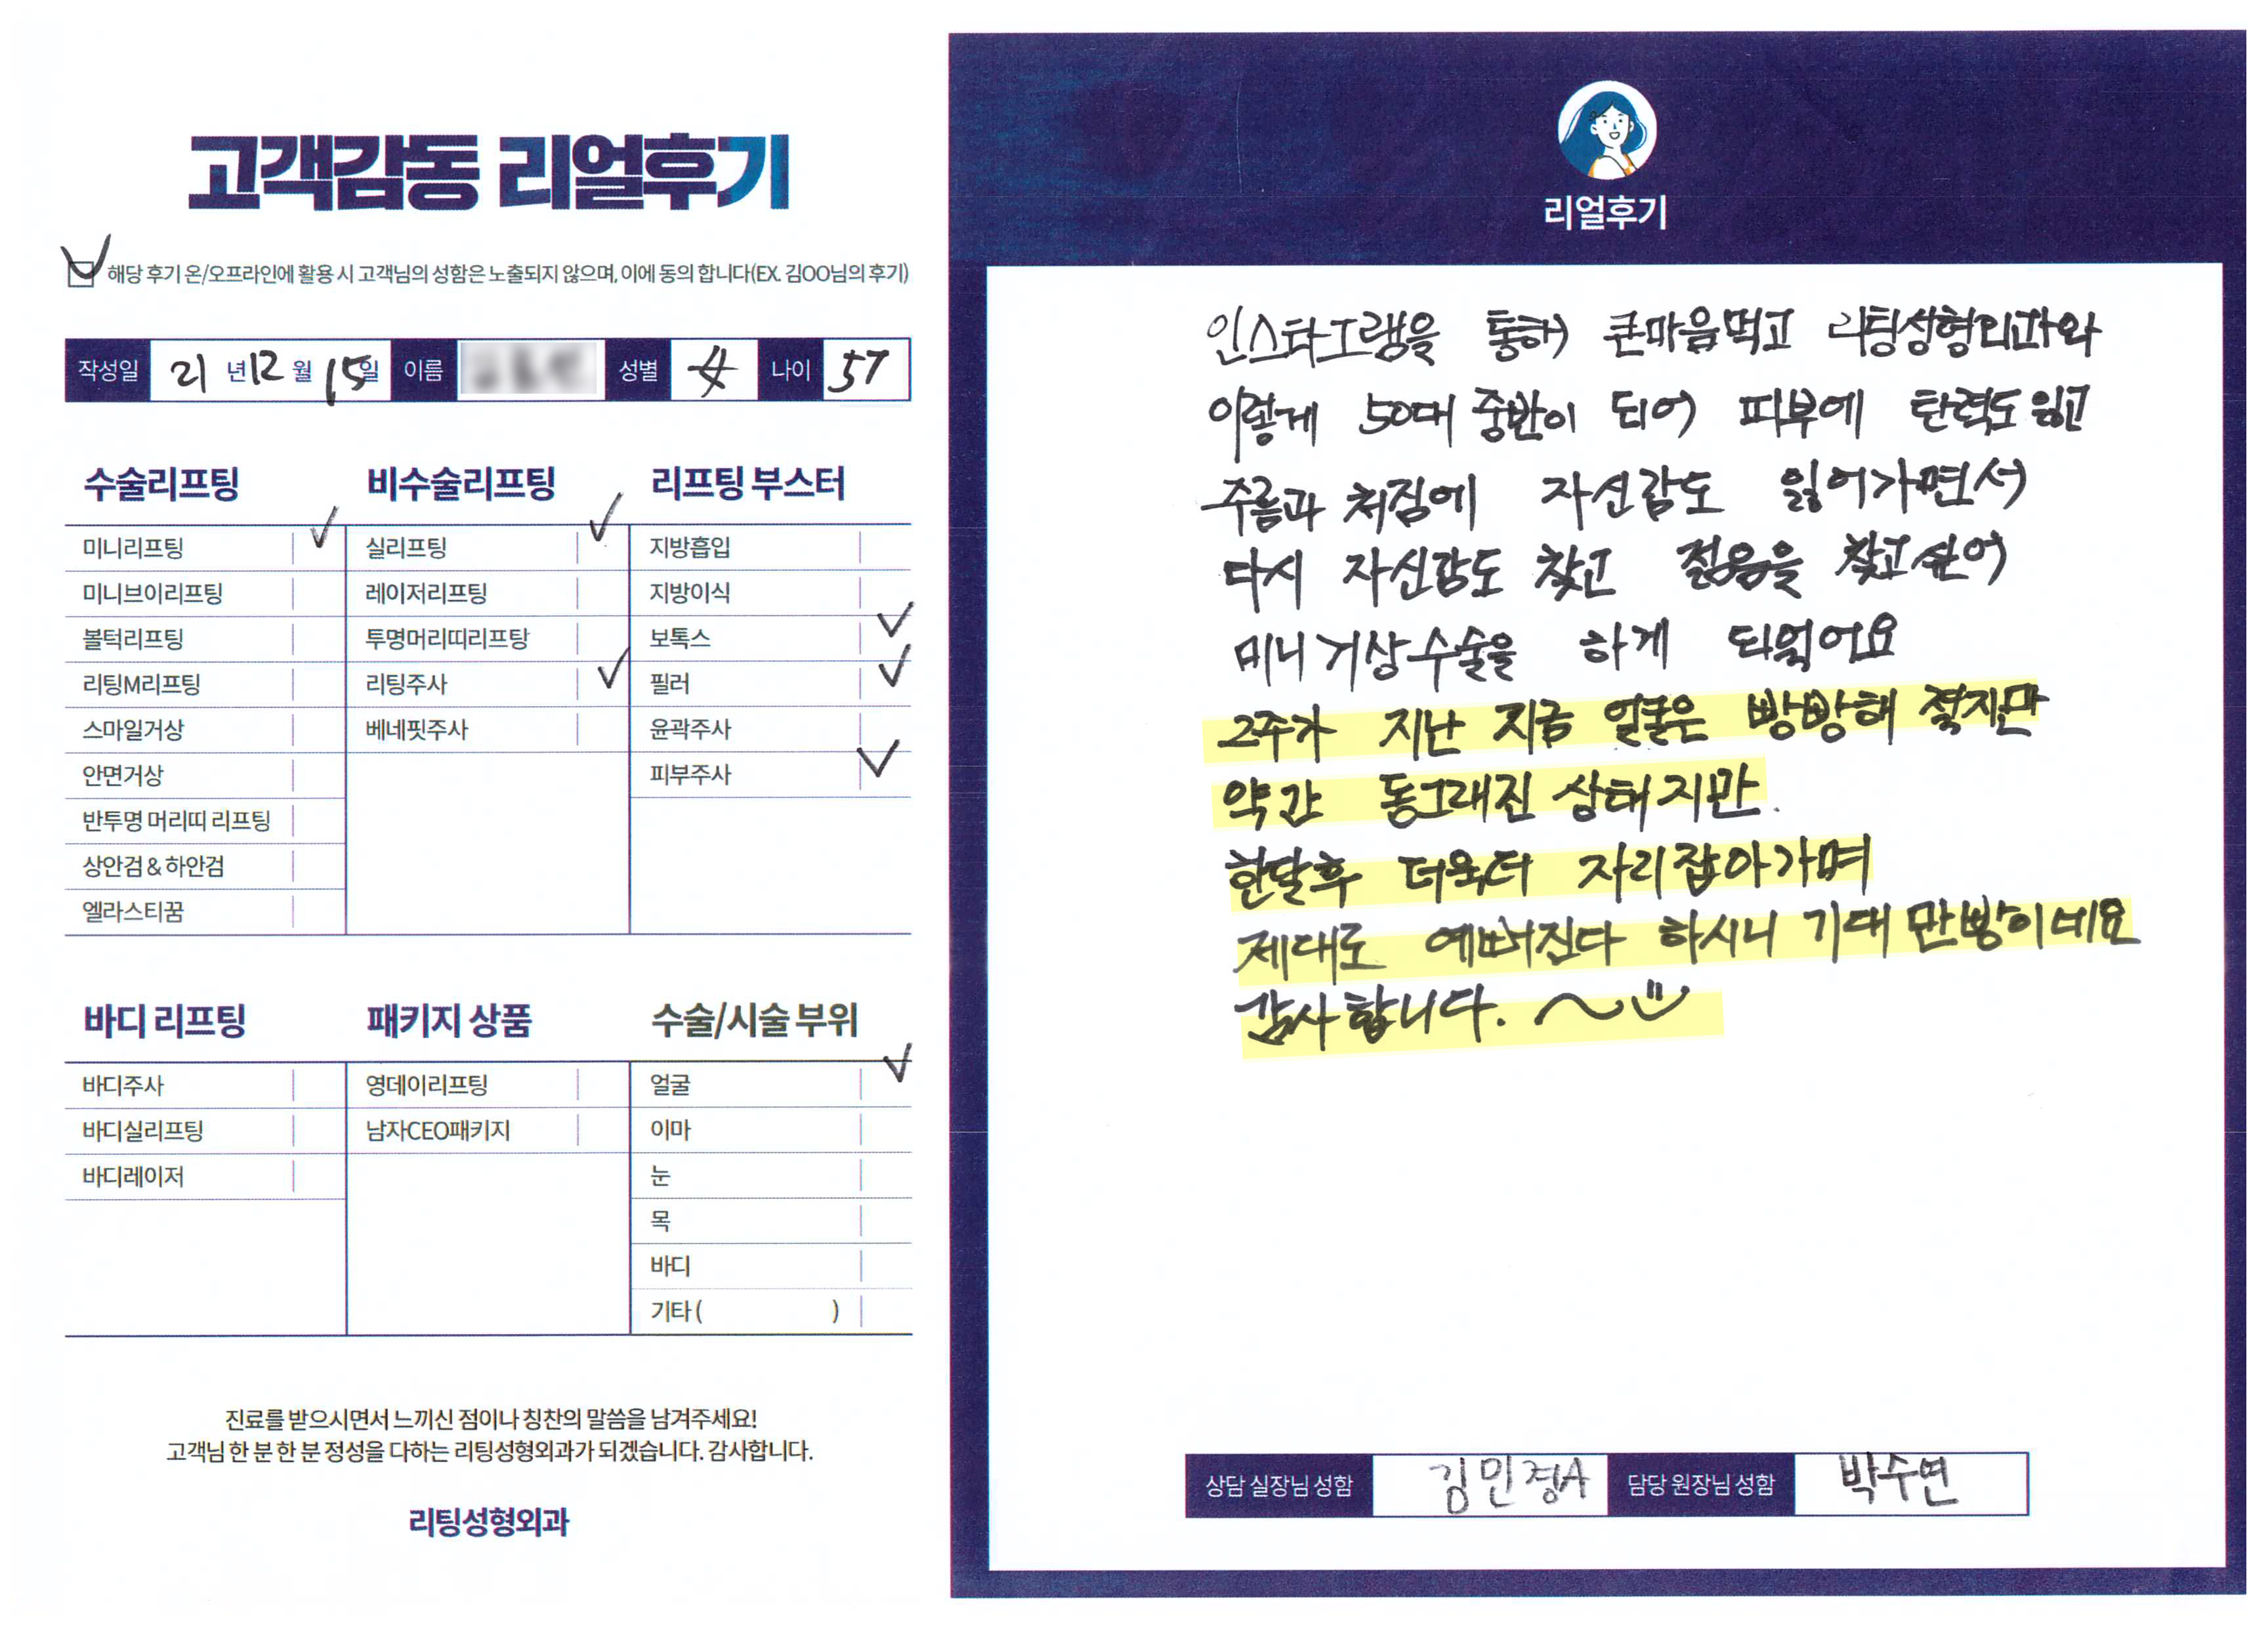 고객감동 리얼후기
해당 후기 온/오프라인에 활용 시 고객님의 성함은 노출되지 않으며, 이에 동의 합니다(EX. 김OO님의 후기)
작성일 21 년 12 월 15일 이름 성별 女 나이 57
수술리프팅 비수술리프팅 리프팅 부스터
미니리프팅 실리프팅 지방흡입
미니브이리프팅 레이저리프팅 지방이식
볼턱리프팅 투명머리띠리프탕 보톡스
리팅M리프팅 리팅주사 필러
스마일거상 베네핏주사 윤곽주사
안면거상 피부주사
반투명 머리띠 리프팅
상안검 & 하안검
엘라스티꿈
바디 리프팅 패키지 상품 수술/시술 부위
바디주사 영데이리프팅 얼굴
바디실리프팅 남자CEO패키지 이마
바디레이저 눈
목
바디
기타 ( )
진료를 받으시면서 느끼신 점이나 칭찬의 말씀을 남겨주세요!
고객님 한 분 한 분 정성을 다하는 리팅성형외과가 되겠습니다. 감사합니다.
리팅성형외과
리얼후기
인스타그램을 통해 큰마음먹고 리팅성형외과와
이렇게 50대 중반이 되어 피부에 탄력도 잃고
주름과 쳐짐에 자신감도 잃어가면서
다시 자신감도 찾고 젊음을 찾고싶어
미니거상수술을 하게 되었어요
2주가 지난 지금 얼굴은 빵빵해 졌지만
약간 동그래진 상태지만.
한달후 더욱더 자리잡아가며
제대로 예뻐진다 하시니 기대 만빵이네요
감사합니다. ~
상담 실장님 성함 김민경A 담당 원장님 성함 박수연